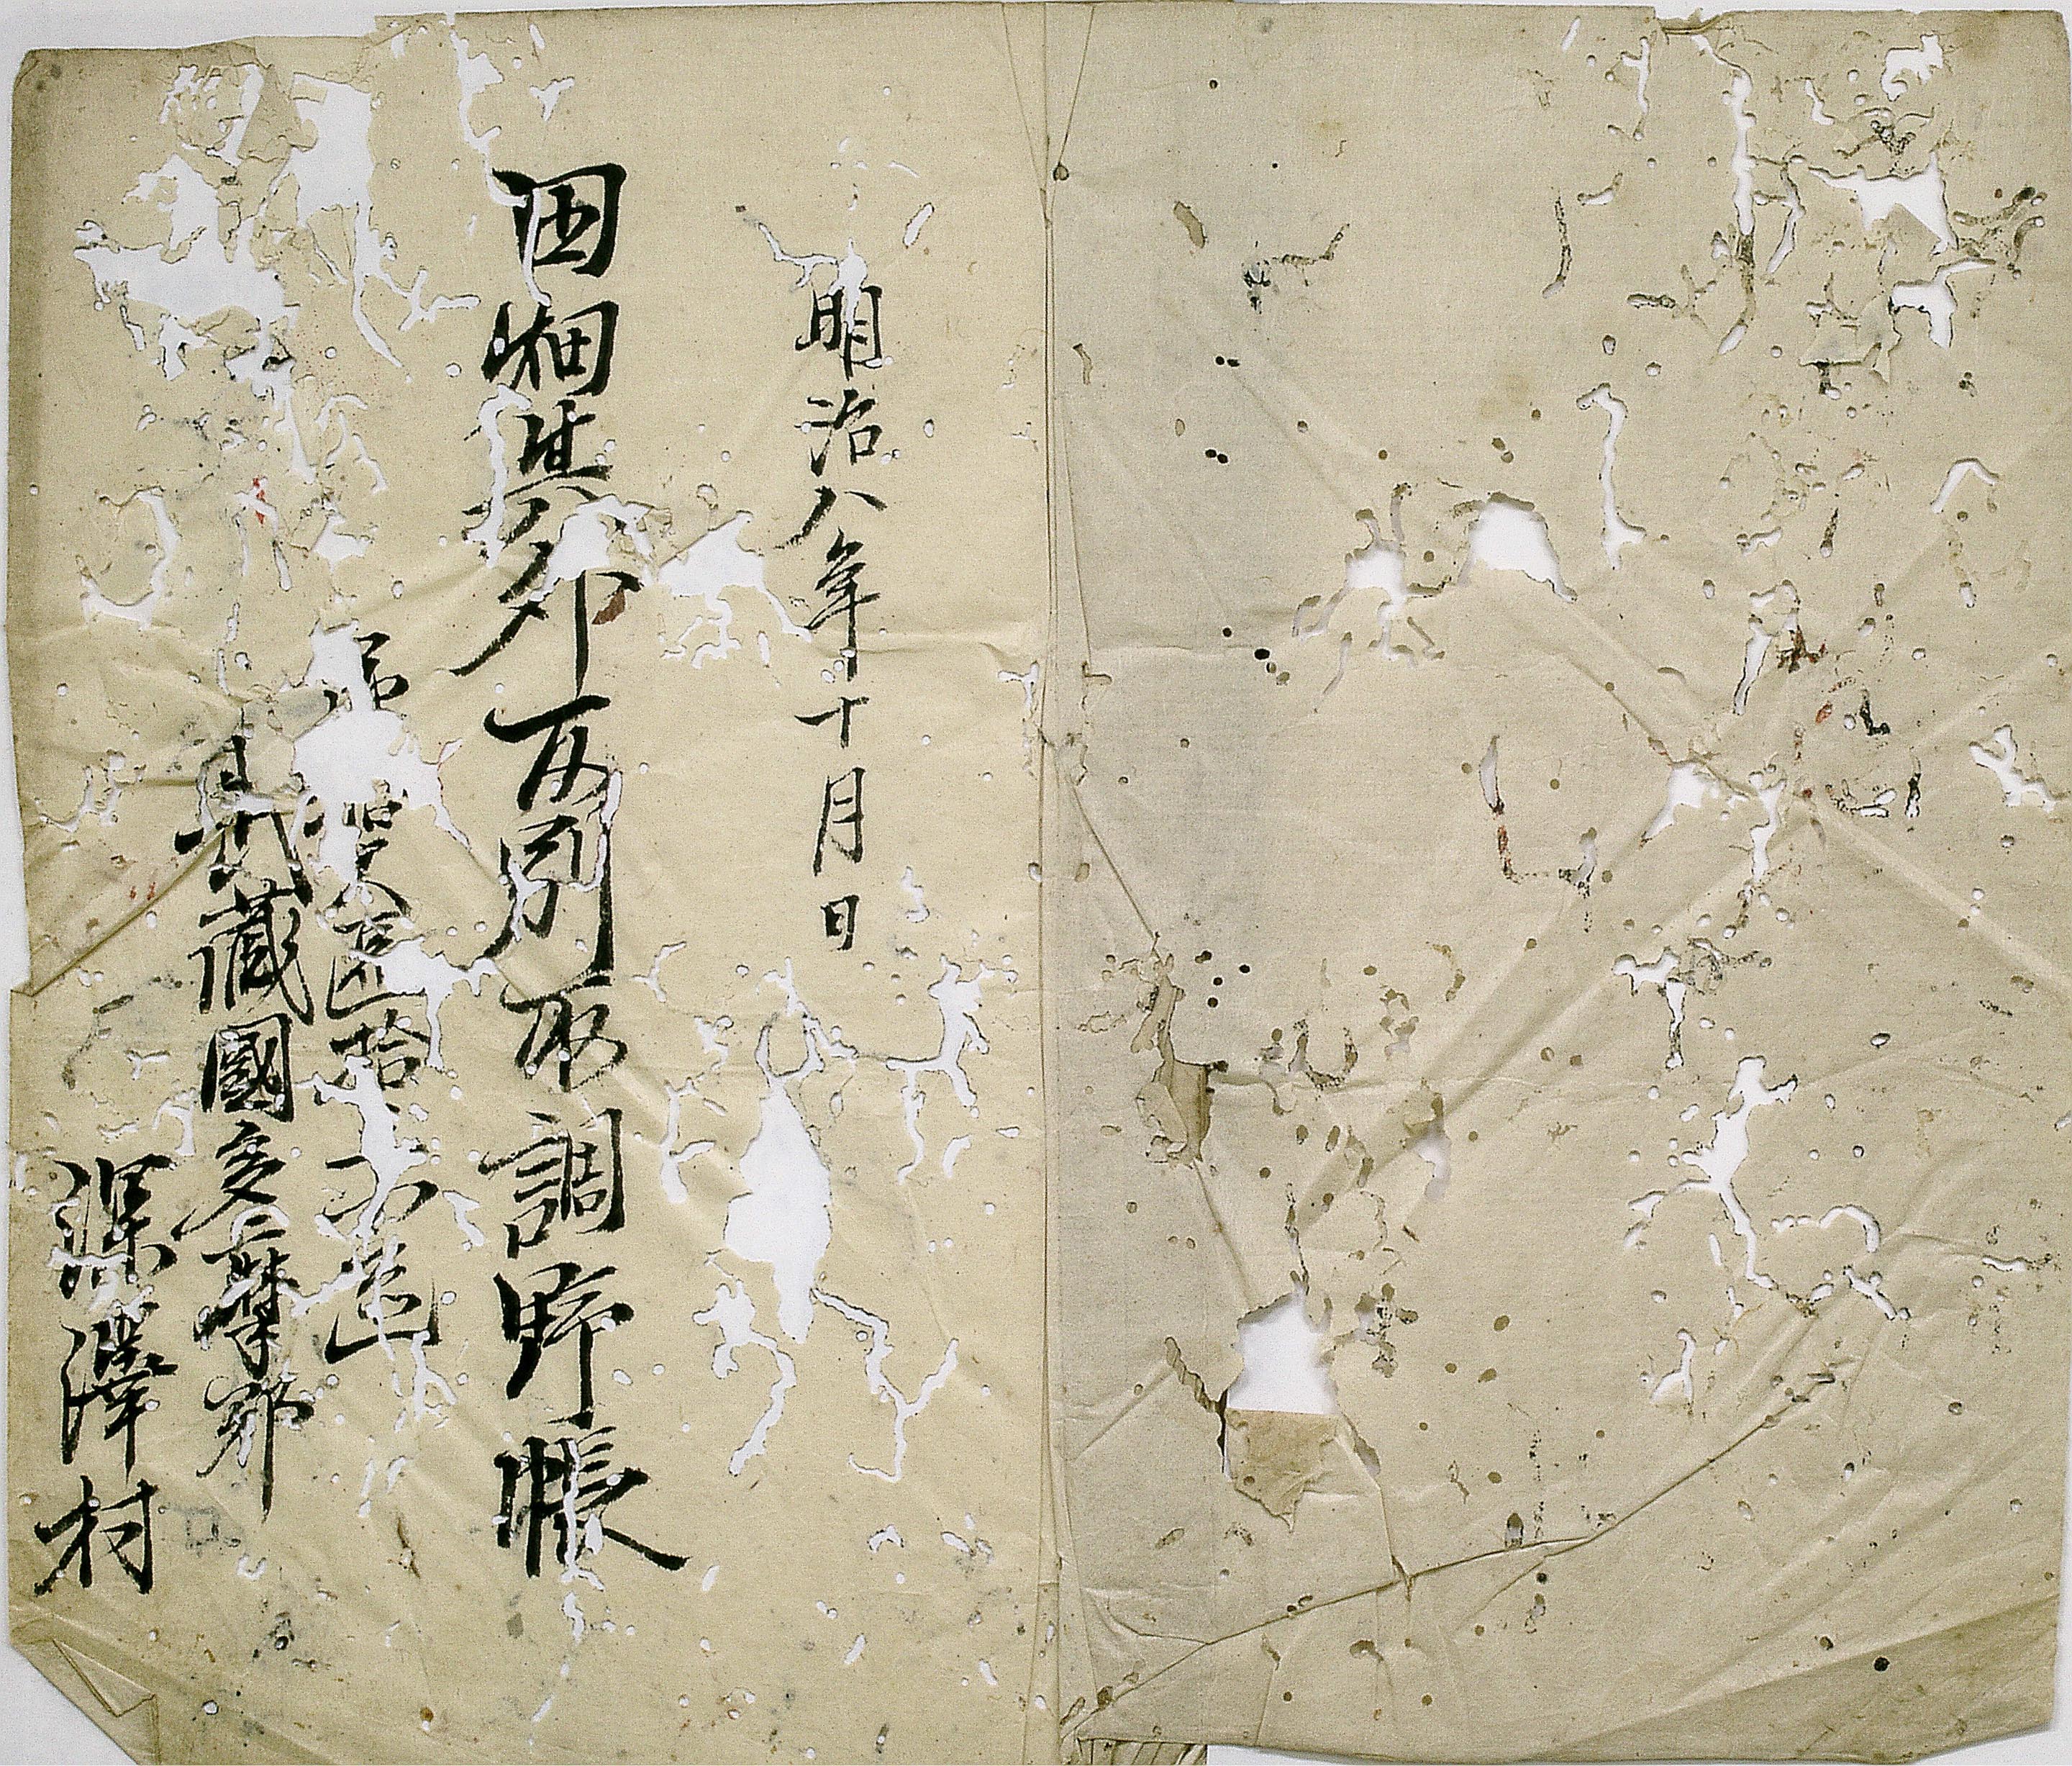 明治八年十月日
田畑其外反別取調野帳
第 大區拾 小區
武藏國多摩郡
深澤村